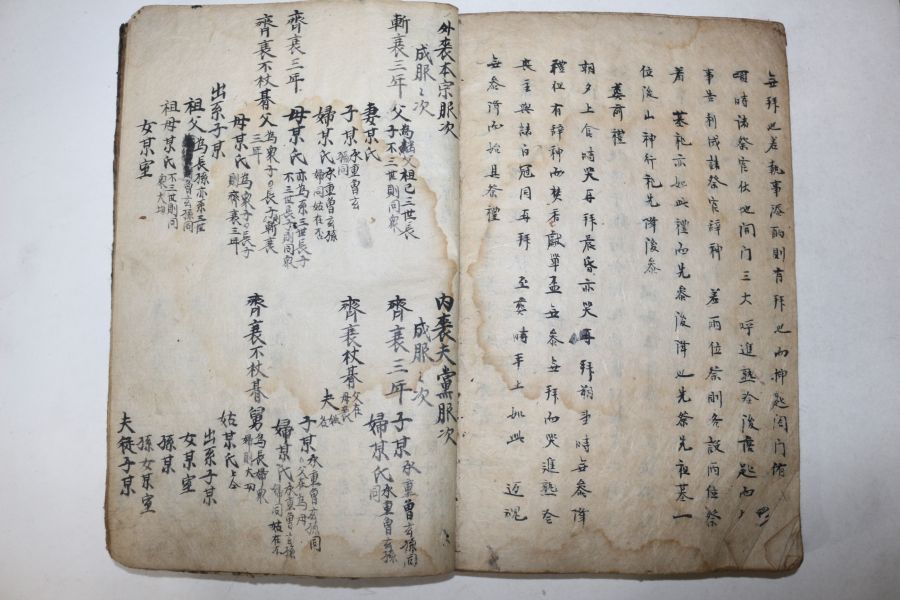 每拜也若執事添酌則有拜也而揷匙闔門侑
時諸祭官仕地间门三大呼進熟冷後落匙而
事告利成諸祭官辞神 若兩位祭則各設兩位祭
著 墓祀亦如此禮而先參後降也先祭先祖墓一
位後山神行祀先降後參
葬前禮
朝夕上食時哭再拜晨昏亦哭再拜朔事時每參降
禮位有辞神而焚香獻單盃每參每拜而哭進熟冷
喪主與諸白冠同再拜 至葬時平上如此 返魂
每參降而始具祭禮
外喪本宗服次
成服之次
斬衰三年父
為長父祖已三世長
子不三世則同衆
妻某氏
子某 承重曾玄
孫同
婦某氏 承重曾玄孫
婦同姑在否
齊衰三年 母某氏 亦為系三世長子
不三世長子則同衆
齊衰不杖朞父 為衆子長子斬衰
三年
母某氏 為衆子長子
則齊衰三年
出系子某
祖父 為長孫亦系三世
曾玄孫同
祖母某氏 不三世則同
衆大功
女某室
內喪夫黨服次
成服之次
齊衰三年 子某 承重曾玄孫同
婦某氏 承重曾玄孫
同
齊衰杖朞 夫 父在
母在
子某 承重曾玄孫同
父在為母
婦某氏 承重曾玄孫
婦同姑在否
齊衰不杖朞 舅 為長婦衆
婦則大功
姑某氏 上仝
出系子某
女某室
孫某
孫女某室
夫從子某